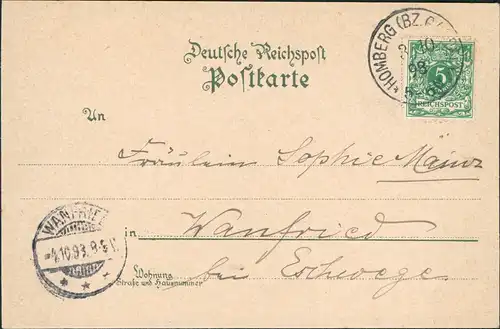 Deutsche Reichspost
Postkarte
HOMBERG (BZ.
98
5
REICHSPOST
An
Fräulein Sophie Mainz
in Wanfried
bei Eschwege
WANFRIED
4.10.98.
Wohnung
Straße und Hausnummer